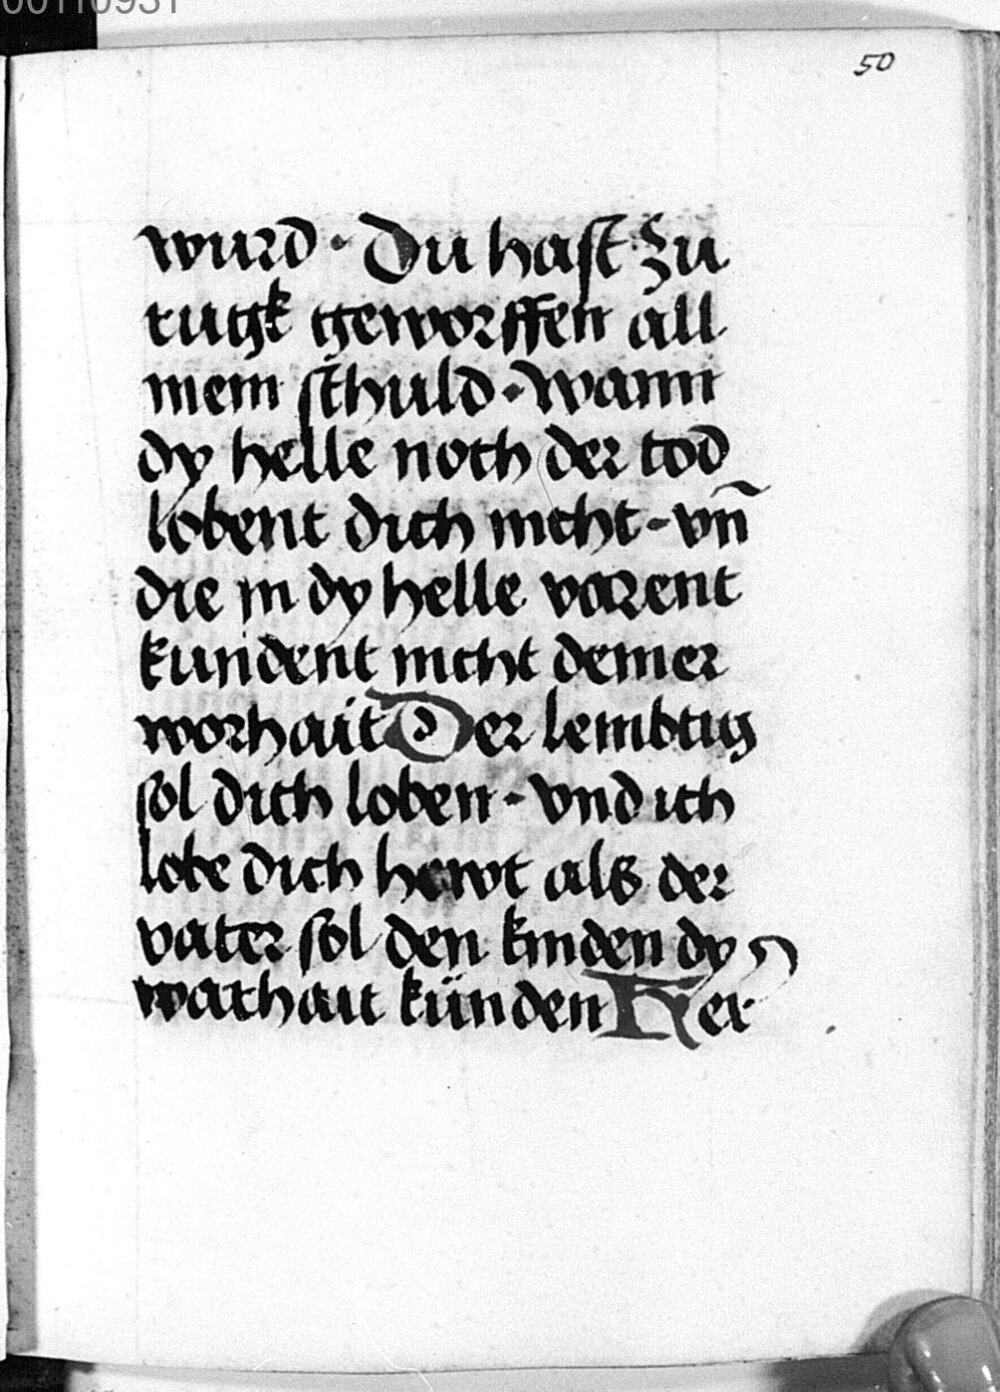 00110931
50
wurd · Du hast zu
rugk geworffen all
mein schuld · wann
dy helle noch der tod
lobent dich nicht · vn̄
die in dy helle varent
kundent nicht deiner
worhait Der lembtig
sol dich loben · vnd ich
lobe dich hewt als der
vater sol den kinden dy
warhait künden Her